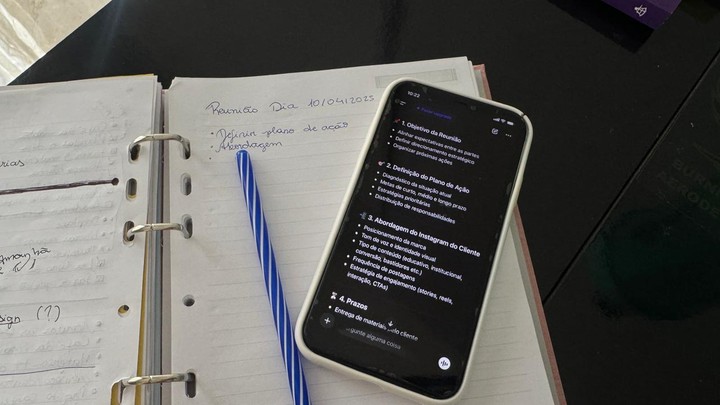 árias
sign (?)
Reunião Dia 10/04/2025
• Definir plano de ação
• Abordagem
•
10:22
1. Objetivo da Reunião
• Alinhar expectativas entre as partes
• Definir direcionamento estratégico
• Organizar próximas ações
2. Definição do Plano de Ação
• Diagnóstico da situação atual
• Metas de curto, médio e longo prazo
• Estratégias prioritárias
• Distribuição de responsabilidades
3. Abordagem do Instagram do Cliente
• Posicionamento da marca
• Tom de voz e identidade visual
• Tipo de conteúdo (educativo, institucional,
conversão, bastidores etc.)
• Frequência de postagens
• Estratégia de engajamento (stories, reels,
interação, CTAs)
4. Prazos
• Entrega de materiais pelo cliente
gunte alguma coisa